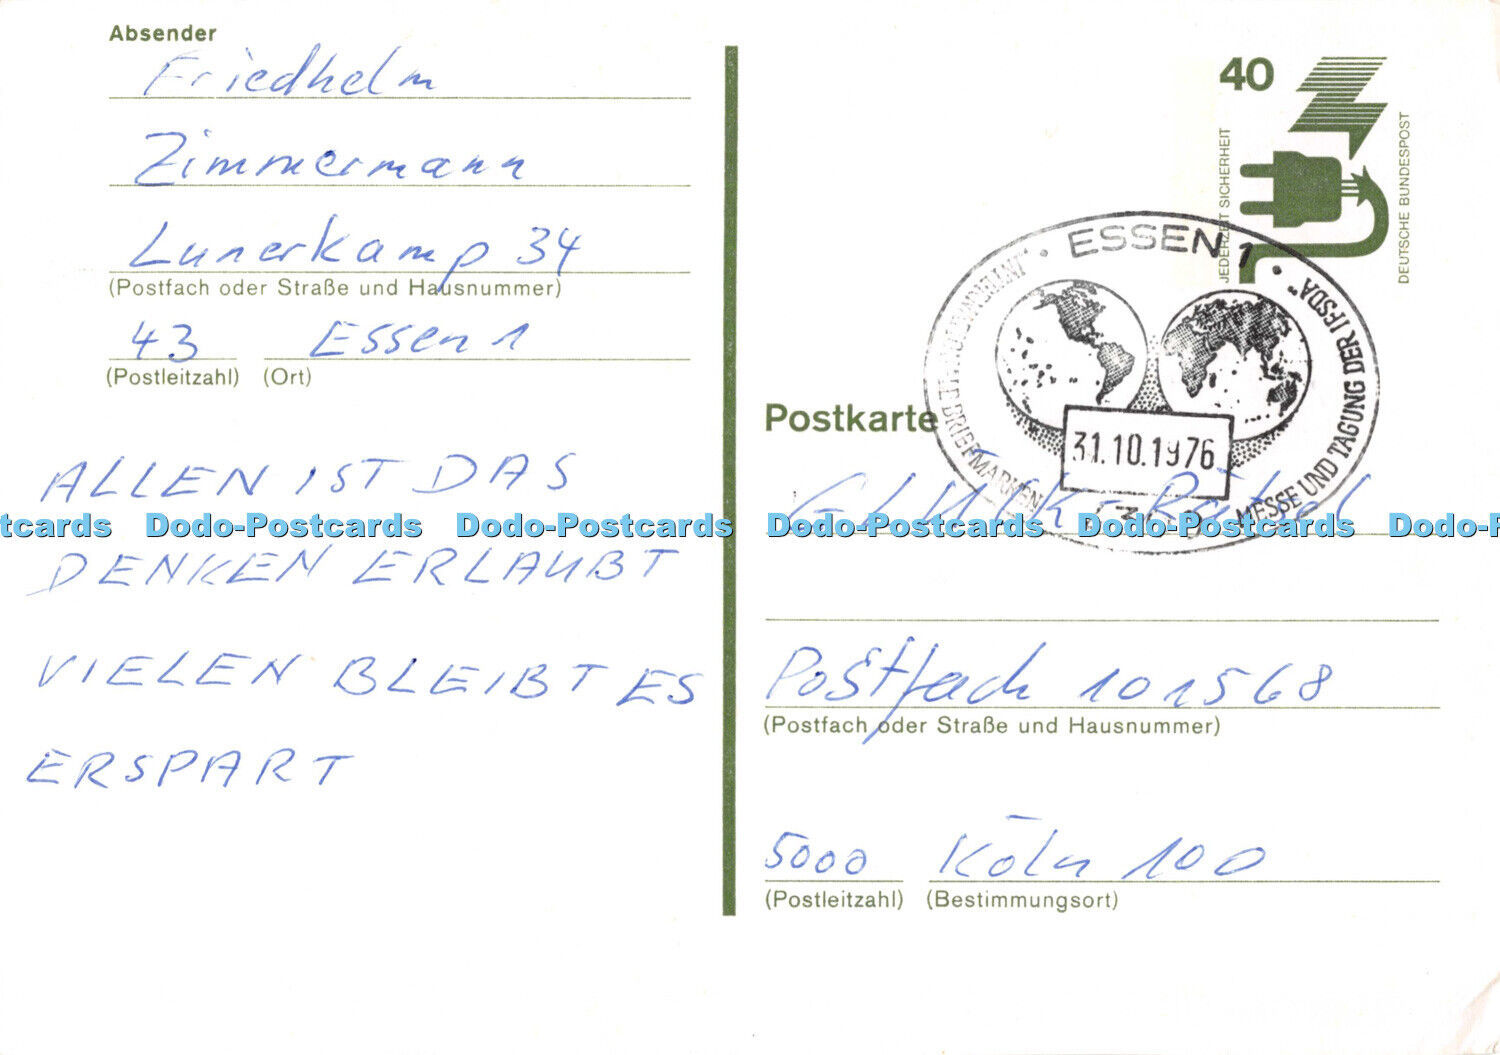 Absender
Friedhelm
Zimmermann
Lunerkamp 34
(Postfach oder Straße und Hausnummer)
43 Essen 1
(Postleitzahl) (Ort)
ALLEN IST DAS
DENKEN ERLAUBT
VIELEN BLEIBT ES
ERSPART
40
JEDERZEIT SICHERHEIT
DEUTSCHE BUNDESPOST
ESSEN 1
INTERNATIONALE BRIEFMARKEN MESSE UND TAGUNG DER "IFSDA"
31.10.1976
Postkarte
GLÜCK-Rätsel
Postfach 101568
(Postfach oder Straße und Hausnummer)
5000 Köln 100
(Postleitzahl) (Bestimmungsort)
tcards Dodo-Postcards Dodo-Postcards Dodo-Postcards Dodo-Postcards Dodo-Po